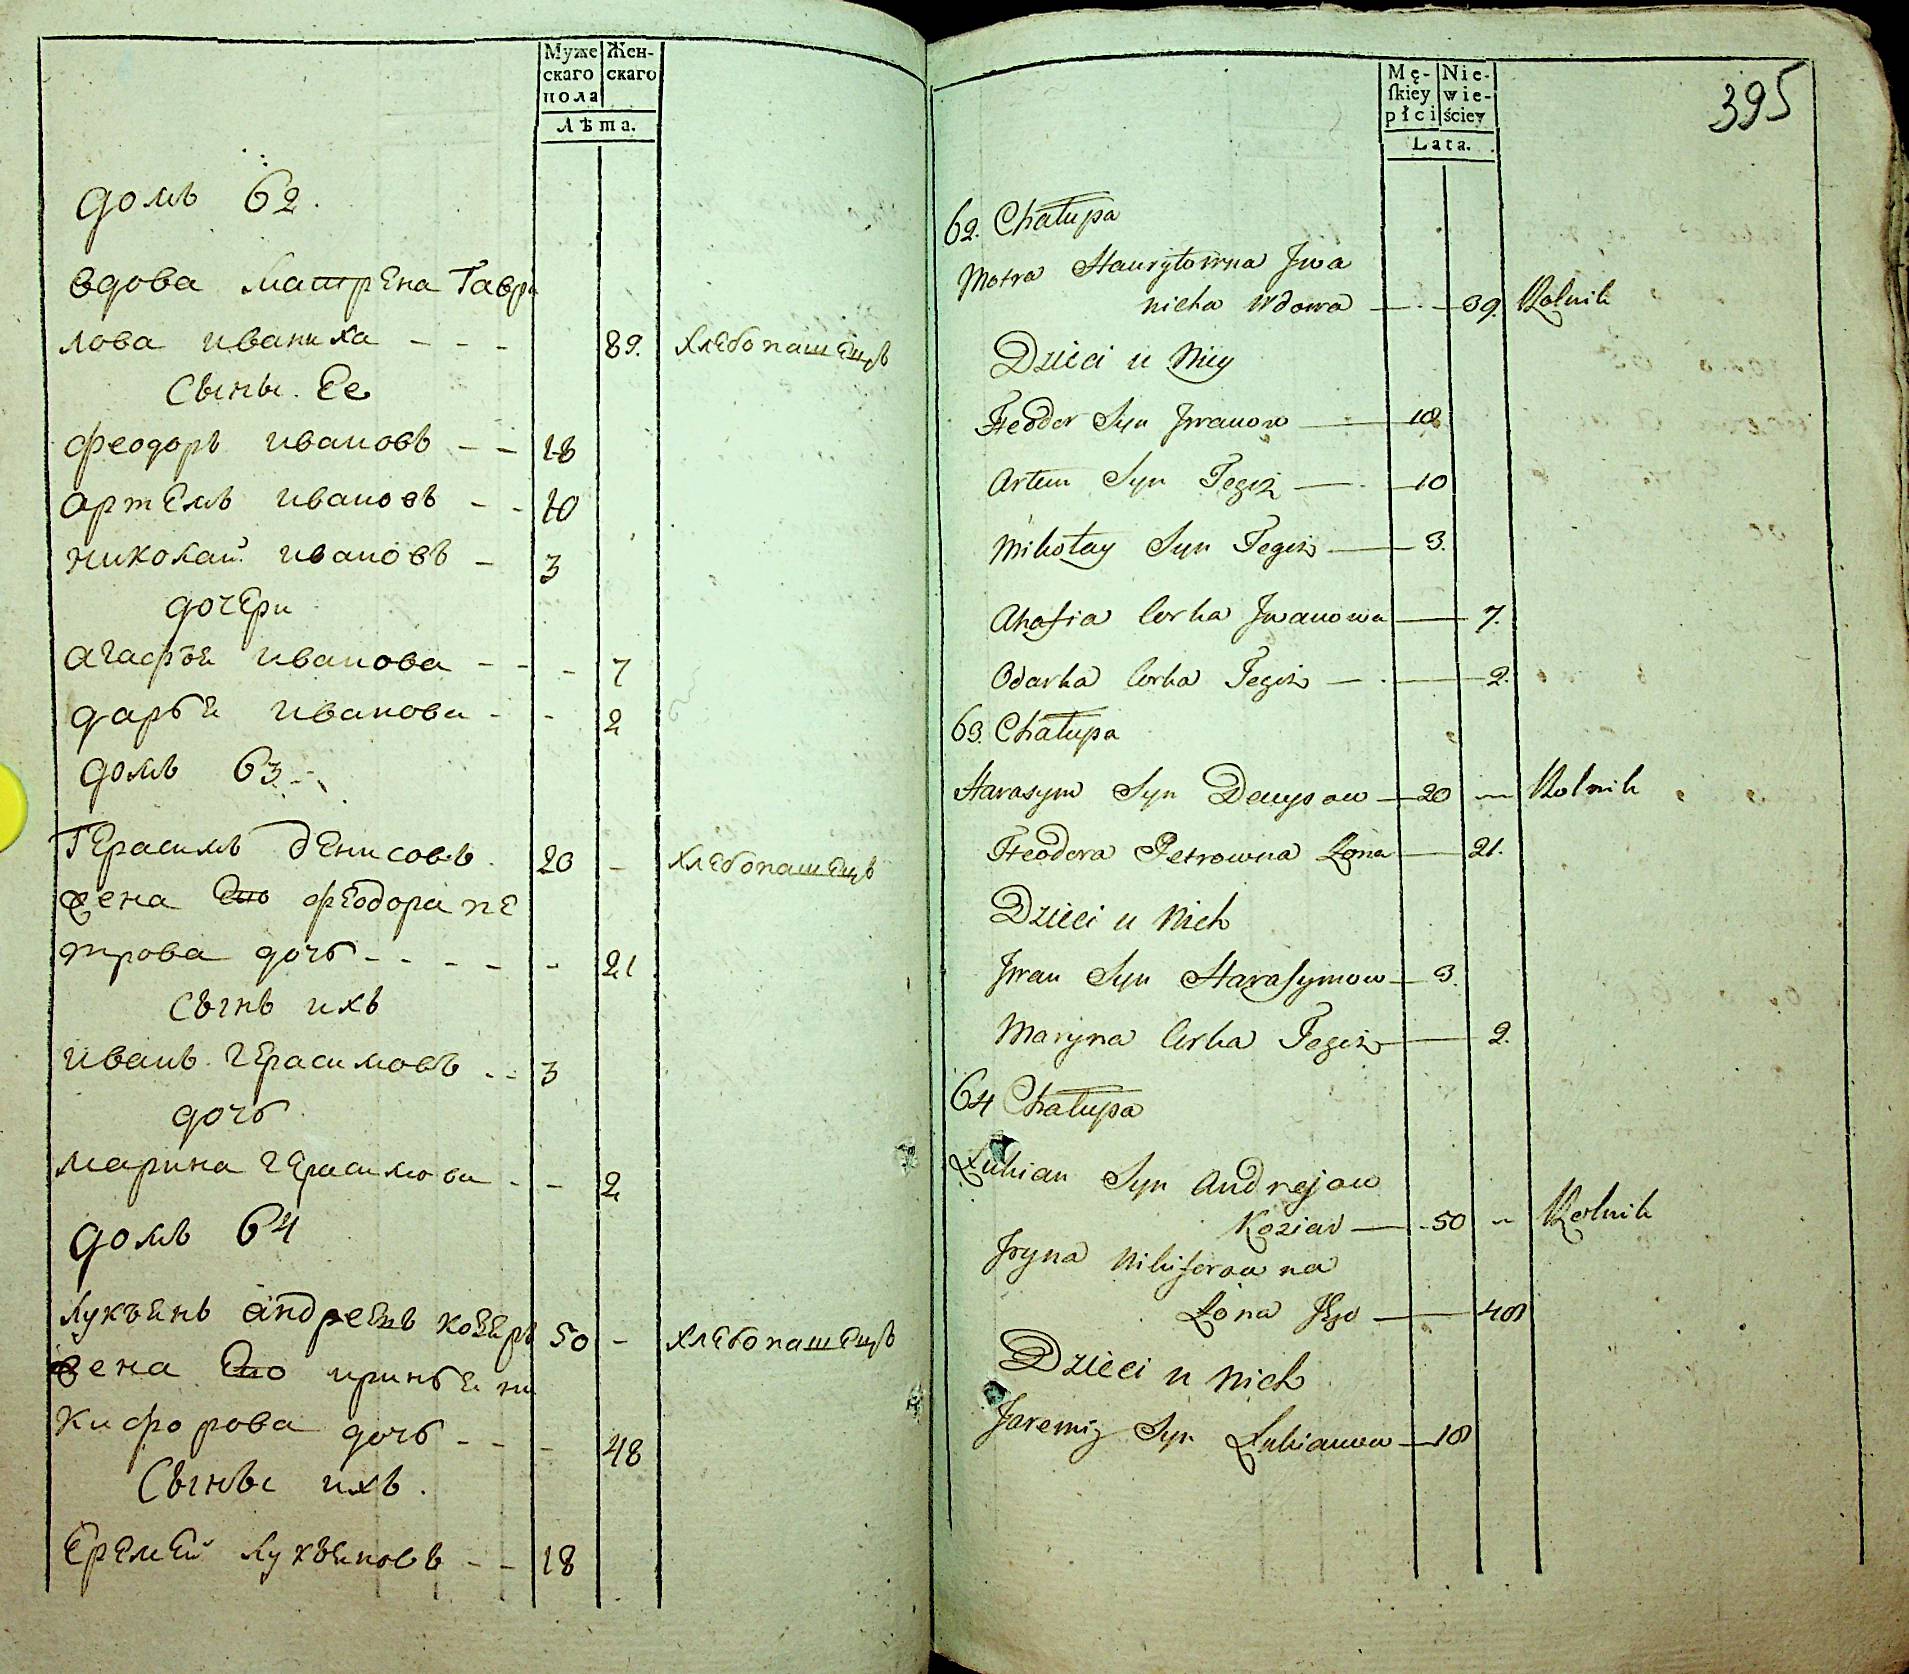 Муже
скаго
пола
Жен-
скаго
Лѣта.
домъ 62.
вдова Матрена Гаври
лова иваниха - - - 89. хлебопашецъ
Сыны. Ее
феодоръ ивановъ - - 18
артемъ ивановъ - - 10
николай ивановъ - 3
дочери
агафья иванова - - - 7
дарья иванова - - 2
домъ 63
Герасимъ денисовъ. 20 - хлебопашецъ
жена Его феодора пе
трова дочь - - - - - 21
Сынъ ихъ
иванъ герасимовъ - - 3
дочь
марина герасимова - - 2
домъ 64
лукъянъ андреевъ козяръ 50 - хлебопашецъ
жена Его иринья ни
кифорова дочь - - - 48
Сыны ихъ.
Еремей лукъяновъ - - 18
Mę-
skiey
płci
Nie-
wie-
ściey
Lata.
395
62. Chałupa
Motra Hawryłowna Jwa
nicha Wdowa — 39. Rolnik
Dzieci u Niey
Fteodor Syn Jwanow — 18
Artem Syn Tegiż — 10
Mikołay Syn Tegiż — 3.
Ahafia Corka Jwanowa — 7.
Odarka Corka Tegiż — 2.
63. Chałupa
Harasym Syn Denysow — 20 — Rolnik
Fteodora Petrowna Żona — 21.
Dzieci u Nich
Jwan Syn Harasymow — 3.
Maryna Corka Tegiż — 2.
64 Chałupa
Łukian Syn Andrejow
Koziar — 50 — Rolnik
Jryna Nikiforowna
Żona Jego — 48
Dzieci u Nich
Jaremij Syn Łukianow — 18